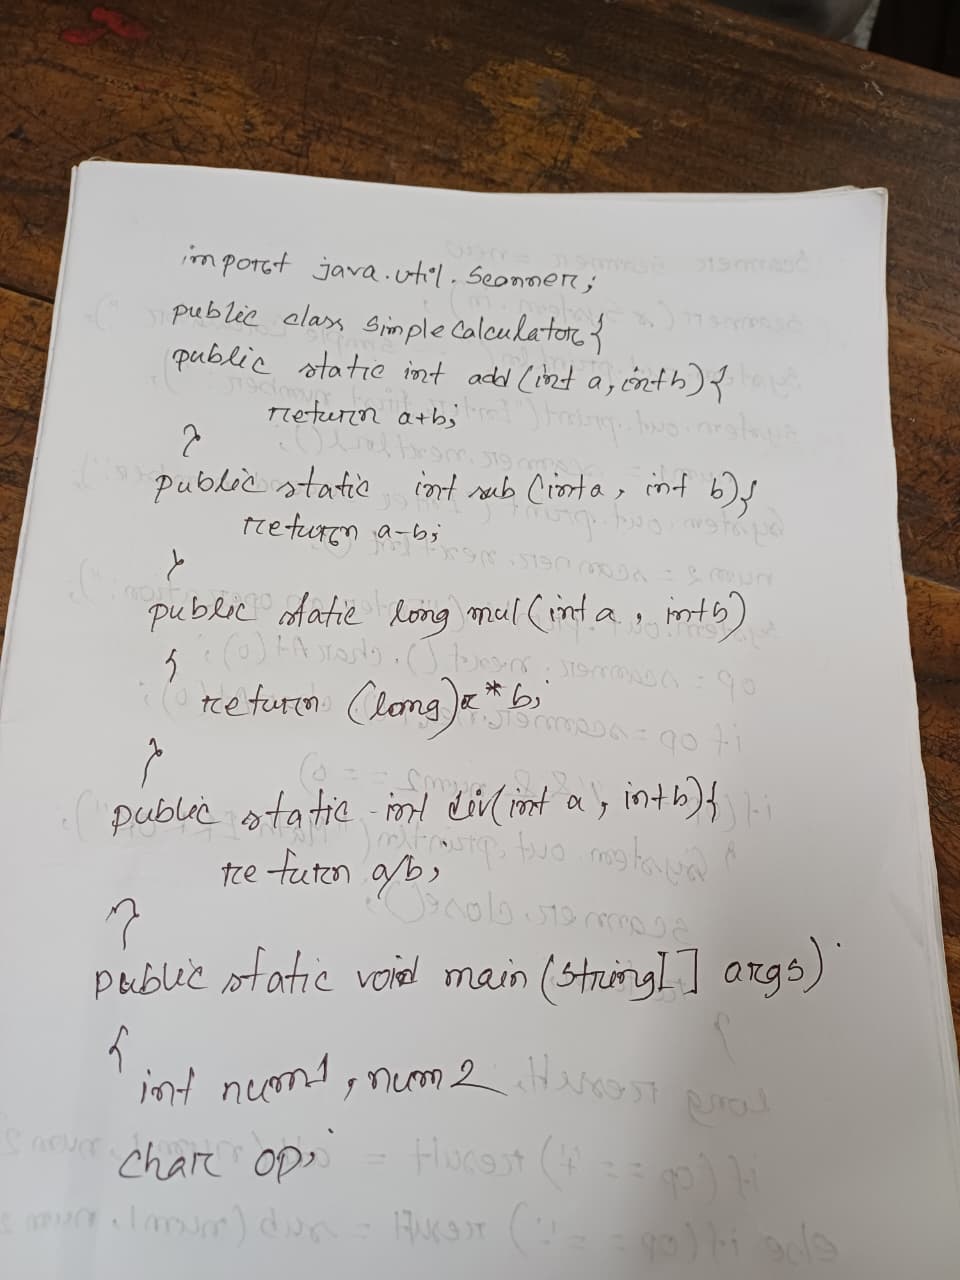 import java.util.Scanner;
public class SimpleCalculator{
public static int add(int a, int b){
return a+b;
}
public static int sub (int a, int b){
return a-b;
}
public static long mul(int a, int b)
{
return (long)a*b;
}
public static int div(int a, int b){
return a/b;
}
public static void main(String[] args)
{
int num1, num2
char op;